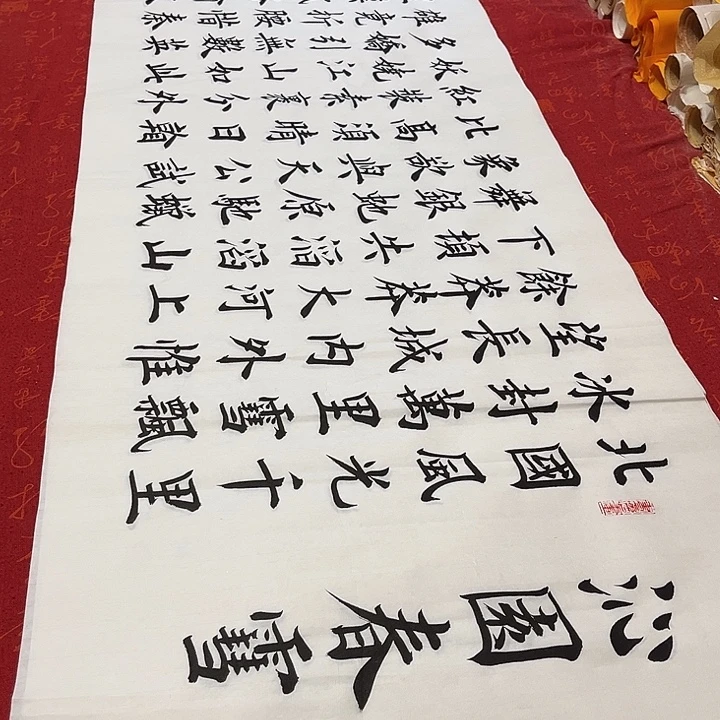 沁園春雪
北國風光千里
冰封萬里雪飄
望長城內外惟
餘莽莽大河上
下頓失滔滔山
舞銀蛇原馳蠟
象欲與天公試
比高須晴日看
紅裝素裹分外
妖嬈江山如此
多嬌引無數英
雄競折腰惜秦